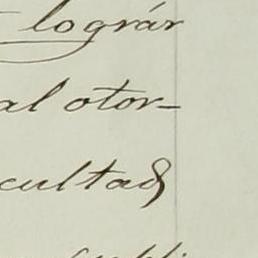 lográr
al otor-
cultad